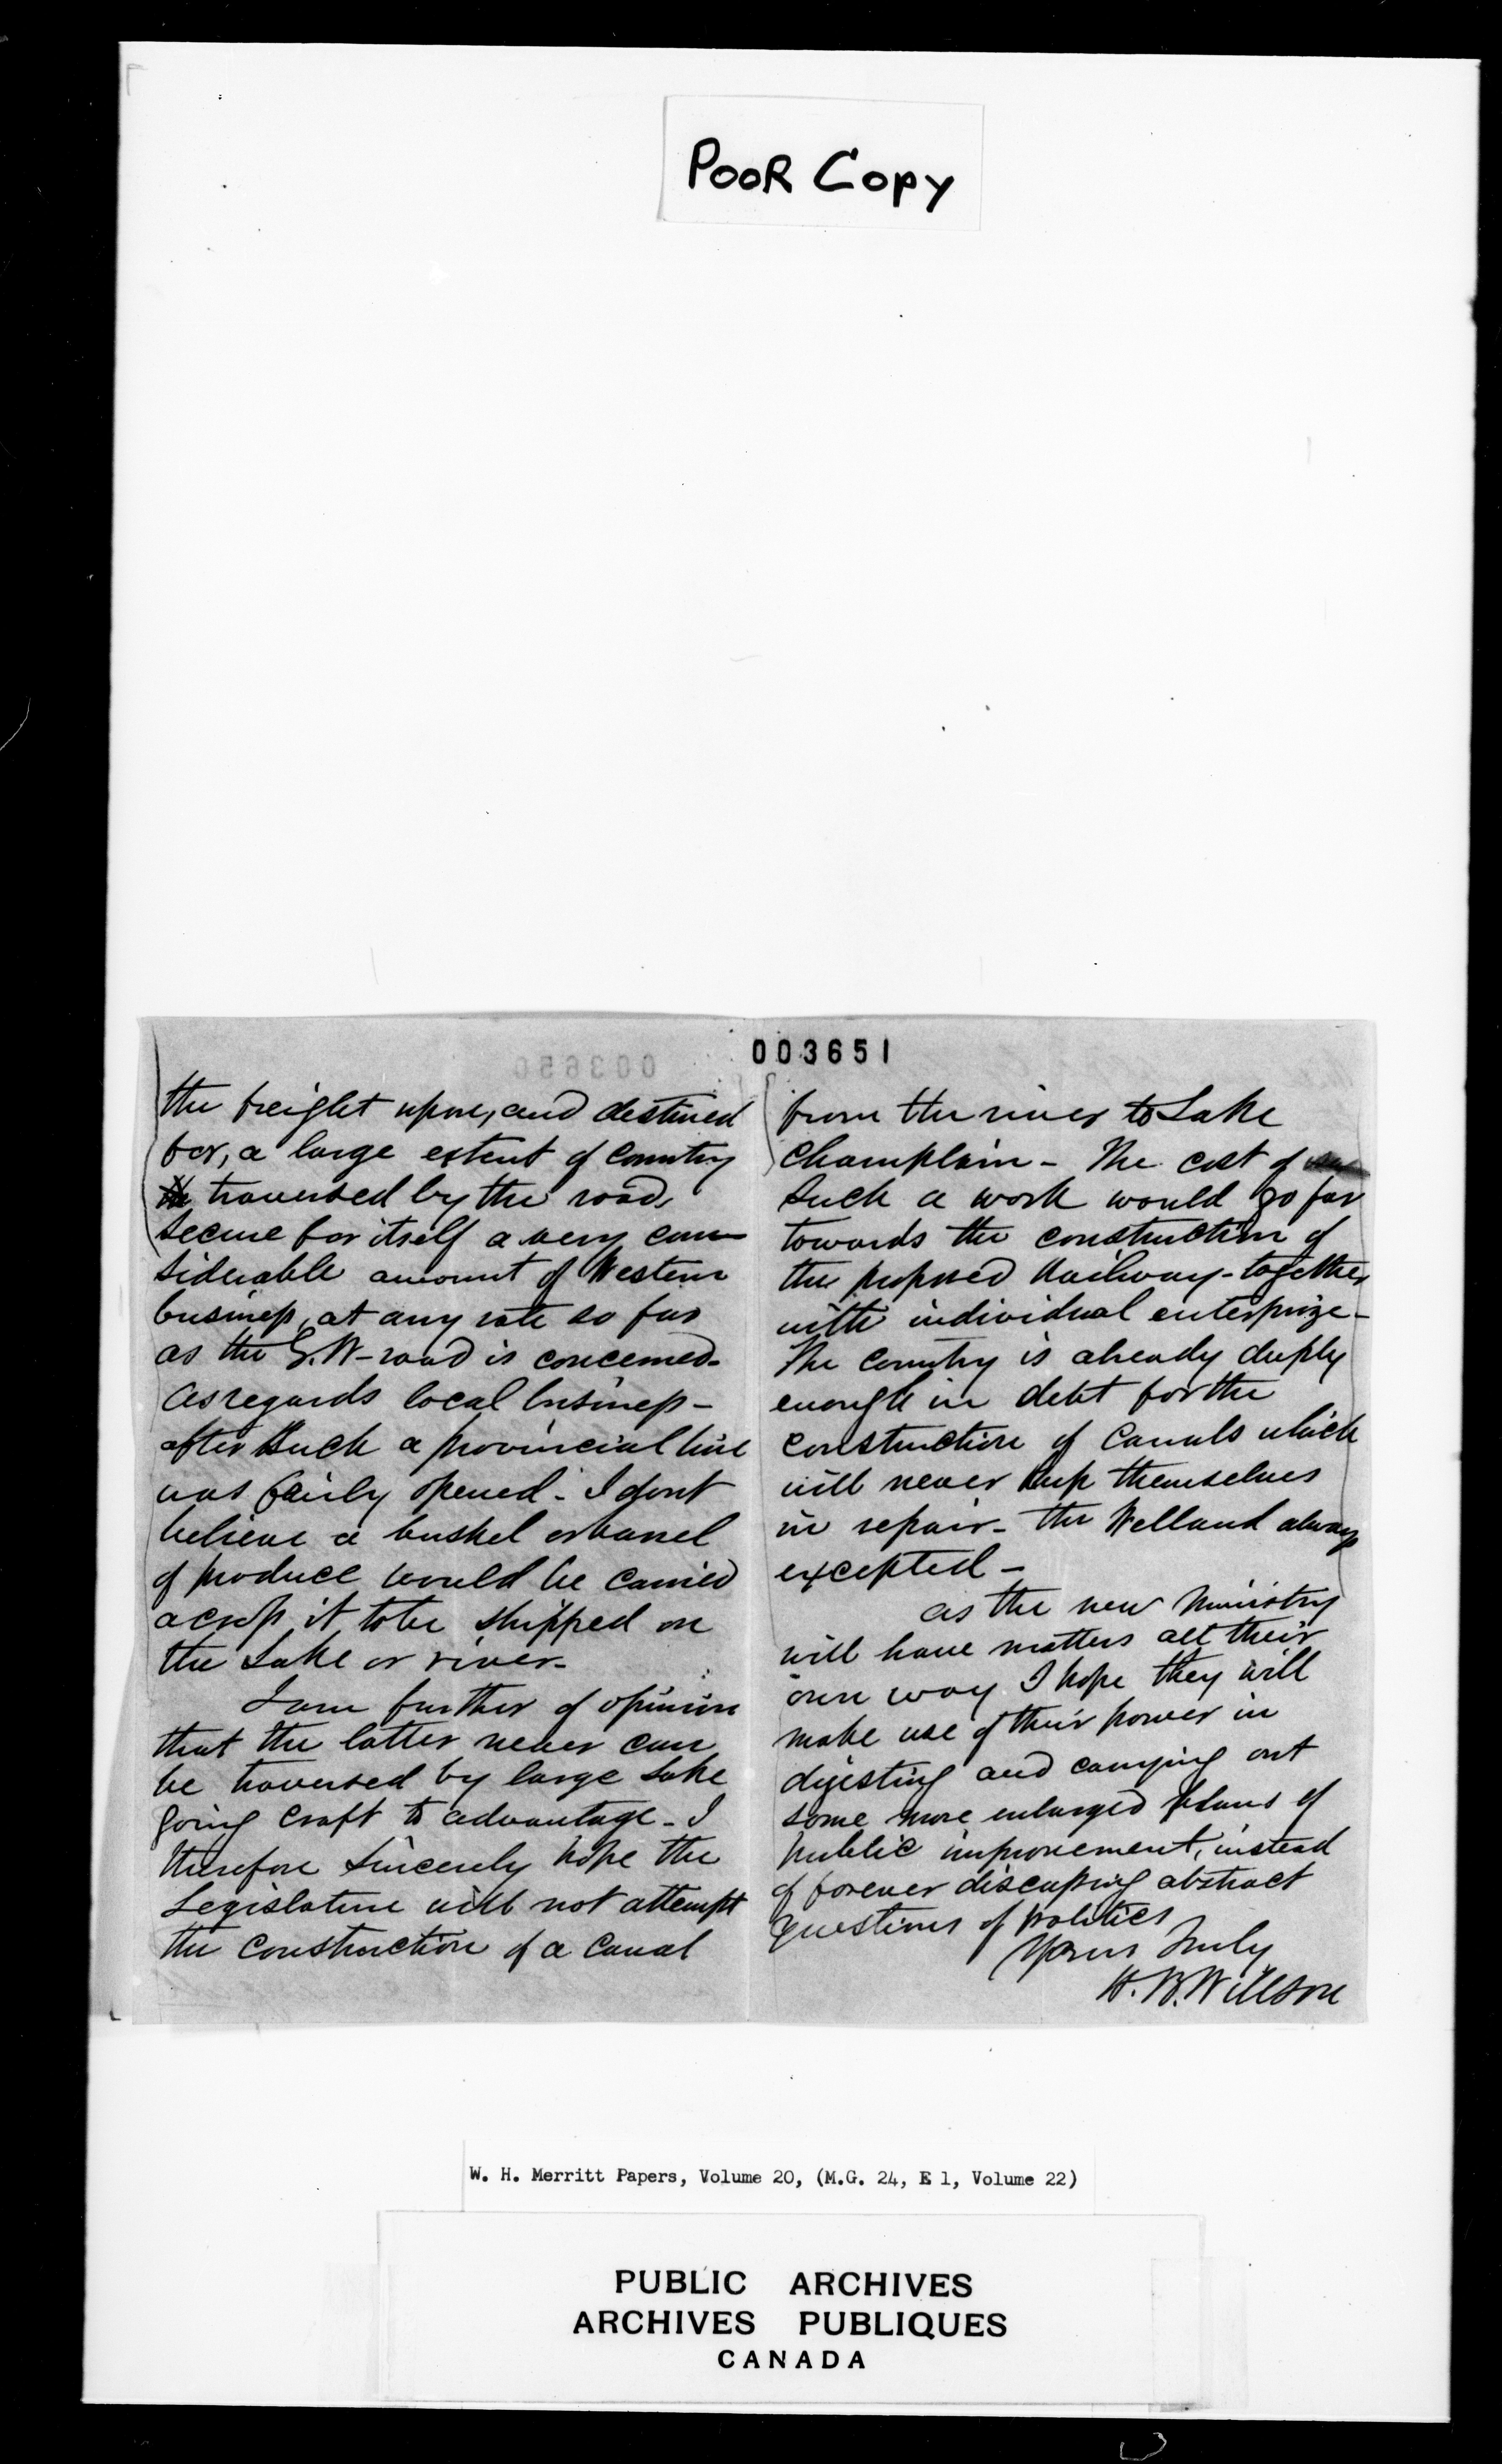 POOR COPY
003651
003650
the freight upon, and destined
for, a large extent of Country
traversed by the road,
secure for itself a very con-
siderable amount of Western
business, at any rate so far
as the G.W-road is concerned.
As regards local business -
after such a provincial line
was fairly opened - I dont
believe a bushel or barrel
of produce would be carried
across it to be shipped on
the Lake or river.
I am further of opinion
that the latter never can
be traversed by large Lake
going craft to advantage - I
therefore sincerely hope the
Legislature will not attempt
the construction of a Canal
from the river to Lake
Champlain - The cost of
such a work would go far
towards the construction of
the proposed Railway - together
with individual enterprize -
The Country is already deeply
enough in debt for the
construction of Canals which
will never keep themselves
in repair - the Welland always
excepted -
As the new Ministry
will have matters all their
own way I hope they will
make use of their power in
digesting and carrying out
some more enlarged plans of
public improvement, instead
of forever discussing abstract
questions of politics
Yours Truly
H. B. Willson
W. H. Merritt Papers, Volume 20, (M.G. 24, E 1, Volume 22)
PUBLIC ARCHIVES
ARCHIVES PUBLIQUES
CANADA